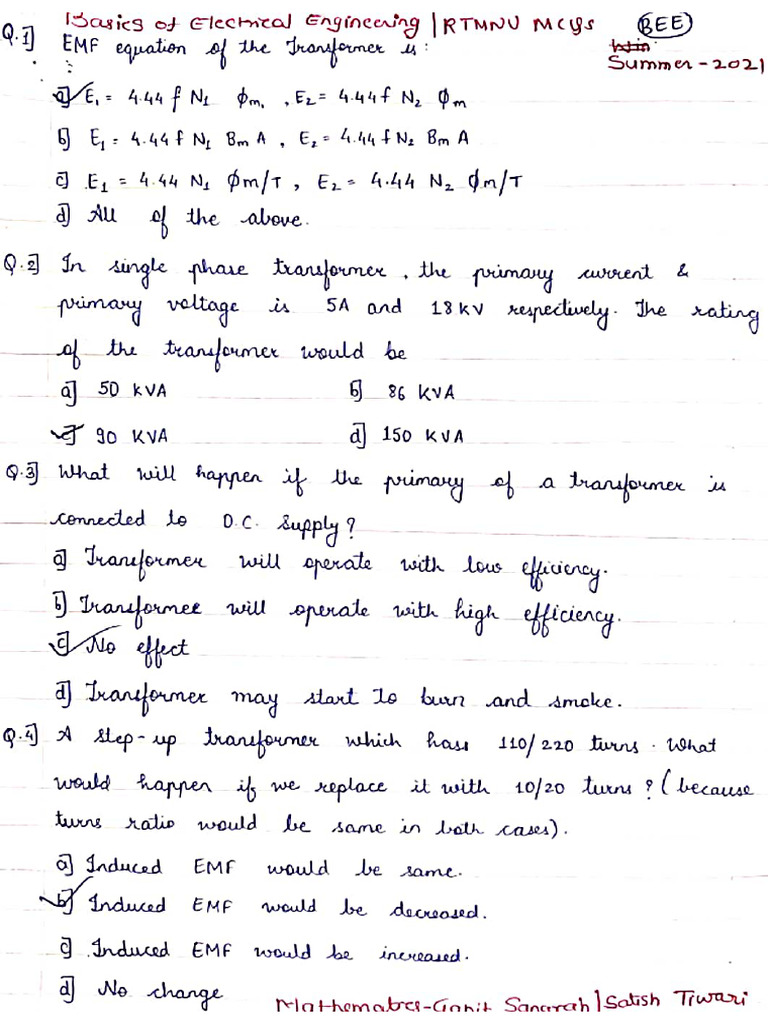 Basics of Electrical Engineering | RTMNU MCQs (BEE)
Summer-2021
Q.1] EMF equation of the Transformer is :
a] E₁ = 4.44 f N₁ Φm, , E₂ = 4.44 f N₂ Φm
b] E₁ = 4.44 f N₁ Bm A , E₂ = 4.44 f N₂ Bm A
c] E₁ = 4.44 N₁ Φm/T , E₂ = 4.44 N₂ Φm/T
d] All of the above.
Q.2] In single phase transformer, the primary current &
primary voltage is 5A and 18 KV respectively. The rating
of the transformer would be
a] 50 KVA b] 86 KVA
c] 90 KVA d] 150 KVA
Q.3] What will happen if the primary of a transformer is
connected to D.C. Supply?
a] Transformer will operate with low efficiency.
b] Transformer will operate with high efficiency.
c] No effect
d] Transformer may start to burn and smoke.
Q.4] A step-up transformer which has 110/220 turns. What
would happen if we replace it with 10/20 turns? (because
turns ratio would be same in both cases).
a] Induced EMF would be same.
b] Induced EMF would be decreased.
c] Induced EMF would be increased.
d] No change
Mathematics-Ganit Sangrah | Satish Tiwari